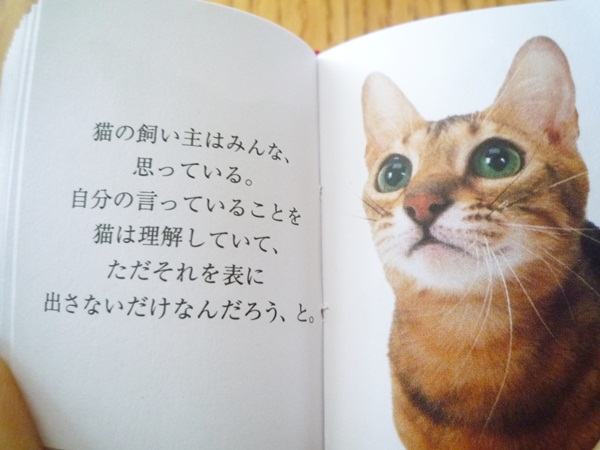 猫の飼い主はみんな、
思っている。
自分の言っていることを
猫は理解していて、
ただそれを表に
出さないだけなんだろう、と。